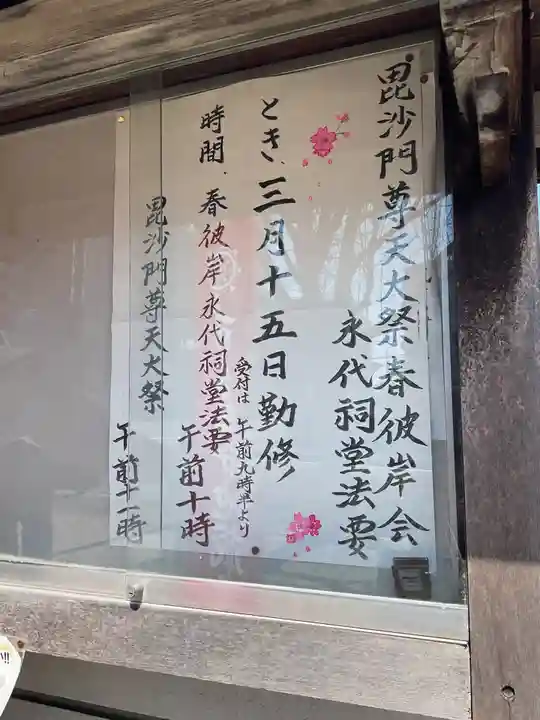 毘沙門尊天大祭春彼岸会
永代祠堂法要
とき、三月十五日勤修
受付は 午前九時半より
時間、春彼岸永代祠堂法要 午前十時
毘沙門尊天大祭 午前十一時